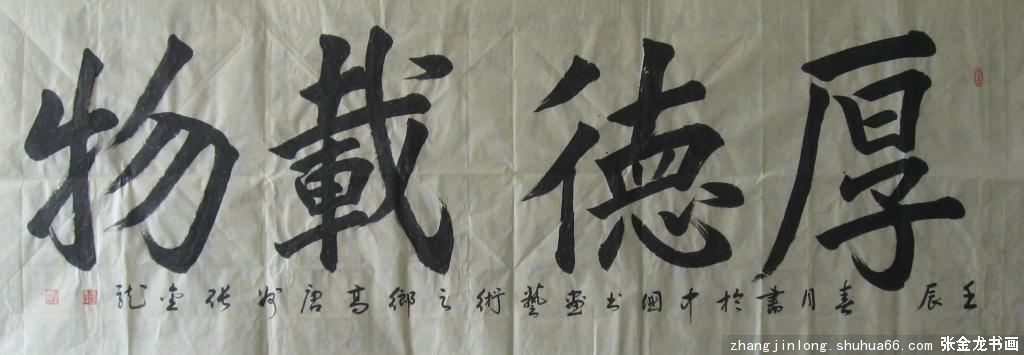 厚德載物
壬辰春月書於中國书画藝術之鄉高唐州張金龙
zhangjinlong.shuhua66.com 张金龙书画